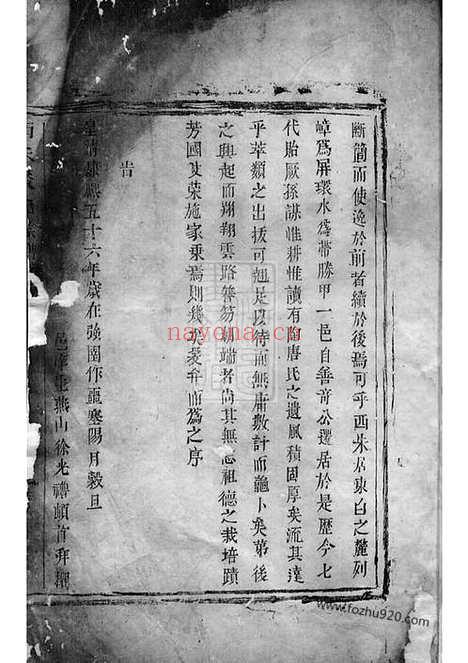 斷簡而使逸於前者續於後焉可乎西朱居東白之麓列
嶂爲屏環水爲帶勝甲一邑自善奇公遷居於是歷今七
代貽厥孫謀惟耕惟讀有陶唐氏之遺風積固厚矣流其達
乎萃類之出拔可翹足以待而無庸數計而龜卜矣第後
之興起而翔翔雲路簪笏朝端者尚其無忘祖德之栽培蹟
芳國史榮施家乘焉則幾於菱弁而爲之序
旹
皇清康熙五十六年歲在強圉作噩塞陽月穀旦
邑庠生燕山徐光禮頓首拜撰
nayona.cn
www.fozhu920.com